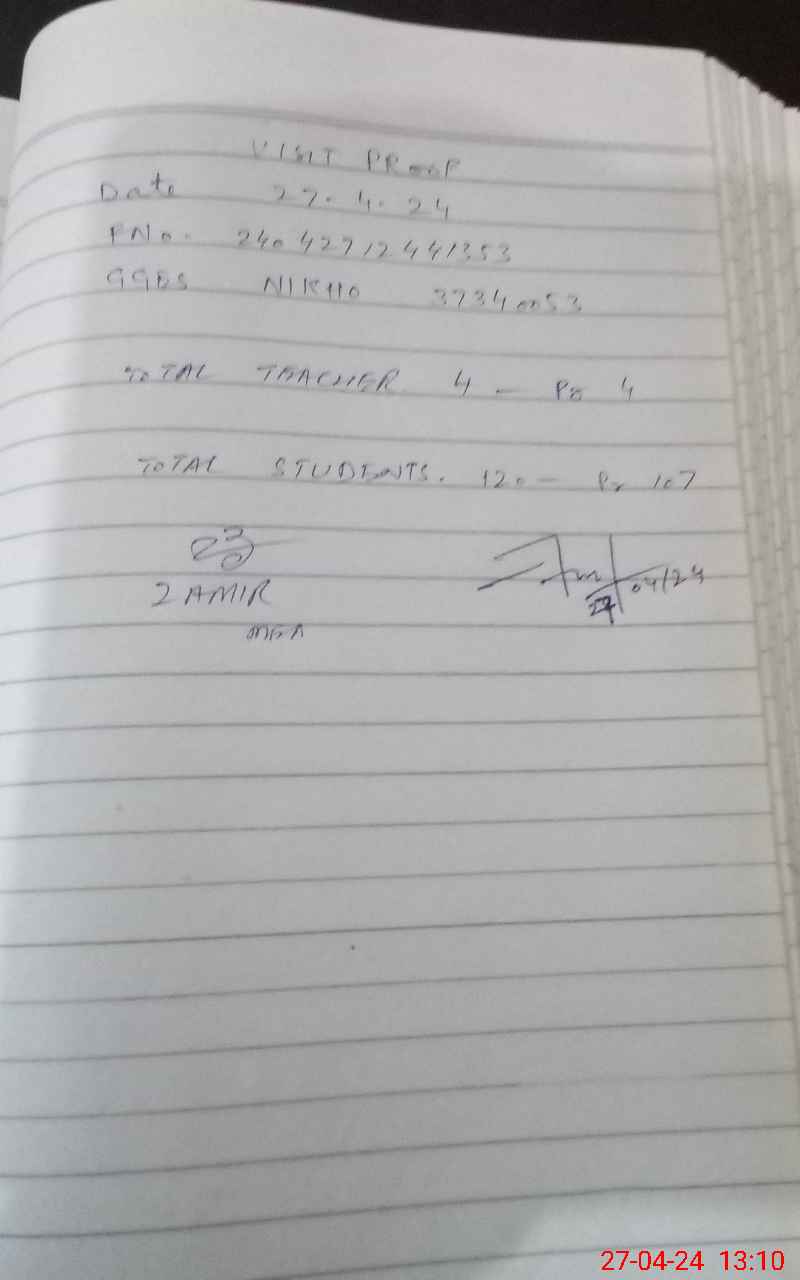 VISIT PROOF
Date 27.4.24
FNo. 24042712441353
GGES NIKHO 37340053
TOTAL TEACHER 4 - Pr 4
TOTAL STUDENTS. 120 - Pr 107
ZAMIR
27/04/24
MEA
27-04-24 13:10